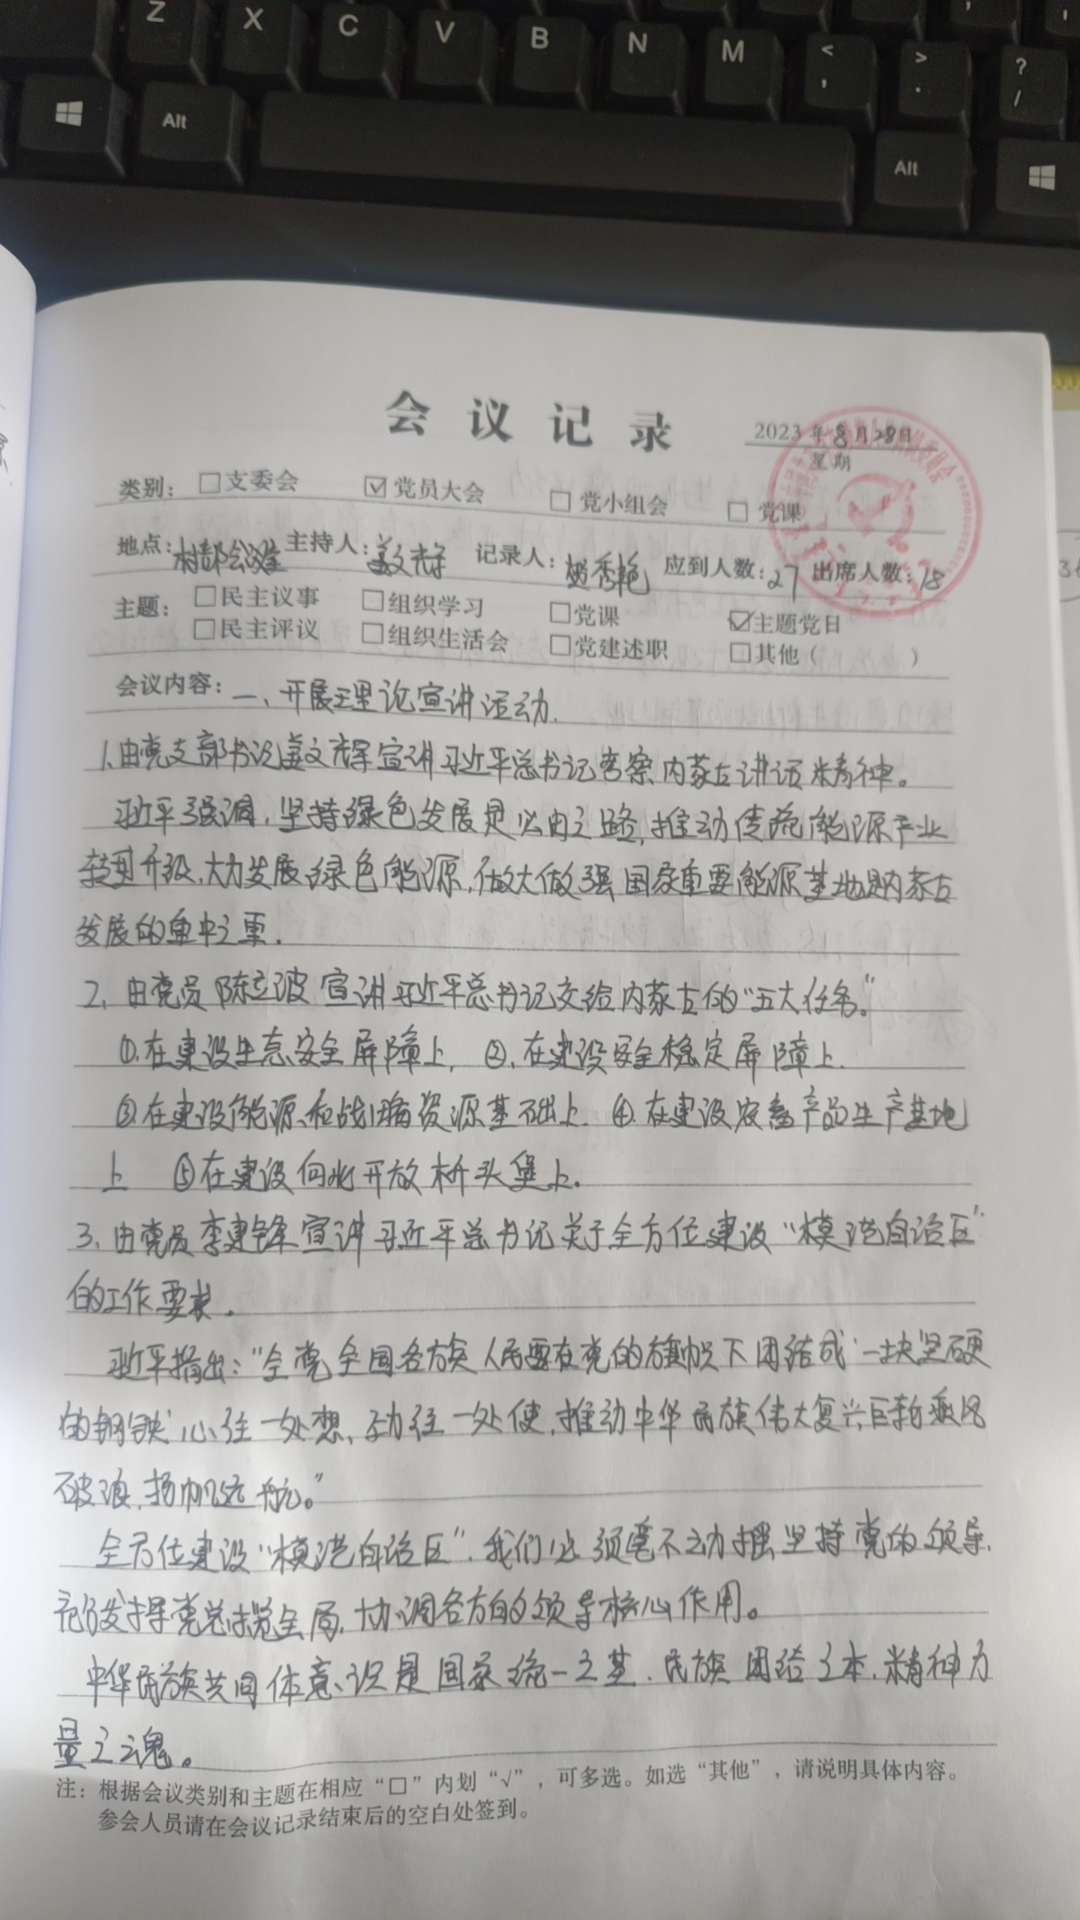 Z X C V B N M < , > . ? /
Alt Alt
会议记录
2023年8月28日
星期
类别： □支委会 ☑党员大会 □党小组会 □党课
地点： 村部会议室 主持人：姜文辉 记录人：秀艳 应到人数：27 出席人数：18
主题： □民主议事 □组织学习 □党课 ☑主题党日
□民主评议 □组织生活会 □党建述职 □其他（ ）
会议内容：一、开展理论宣讲活动.
1.由党支部书记姜文辉宣讲习近平总书记考察内蒙古讲话精神。
习近平强调，坚持绿色发展是必由之路，推动传统能源产业
转型升级，大力发展绿色能源，做大做强国家重要能源基地是内蒙古
发展的重中之重.
2、由党员陈立波宣讲习近平总书记交给内蒙古的“五大任务。”
①.在建设生态安全屏障上，②.在建设安全稳定屏障上.
③在建设能源和战略资源基础上.④.在建设农畜产品生产基地
上 ⑤在建设向北开放桥头堡上.
3、由党员李建锋宣讲习近平总书记关于全方位建设“模范自治区”
的工作要求.
习近平指出：“全党全国各族人民要在党的旗帜下团结成‘一块坚硬
的钢铁’心往一处想、劲往一处使，推动中华民族伟大复兴巨轮乘风
破浪，扬帆远航。”
全方位建设“模范自治区”，我们必须毫不动摇坚持党的领导，
充分发挥党总揽全局，协调各方的领导核心作用。
中华民族共同体意识是国家统一之基，民族团结之本，精神力
量之魂。
注：根据会议类别和主题在相应“□”内划“√”，可多选。如选“其他”，请说明具体内容。
参会人员请在会议记录结束后的空白处签到。